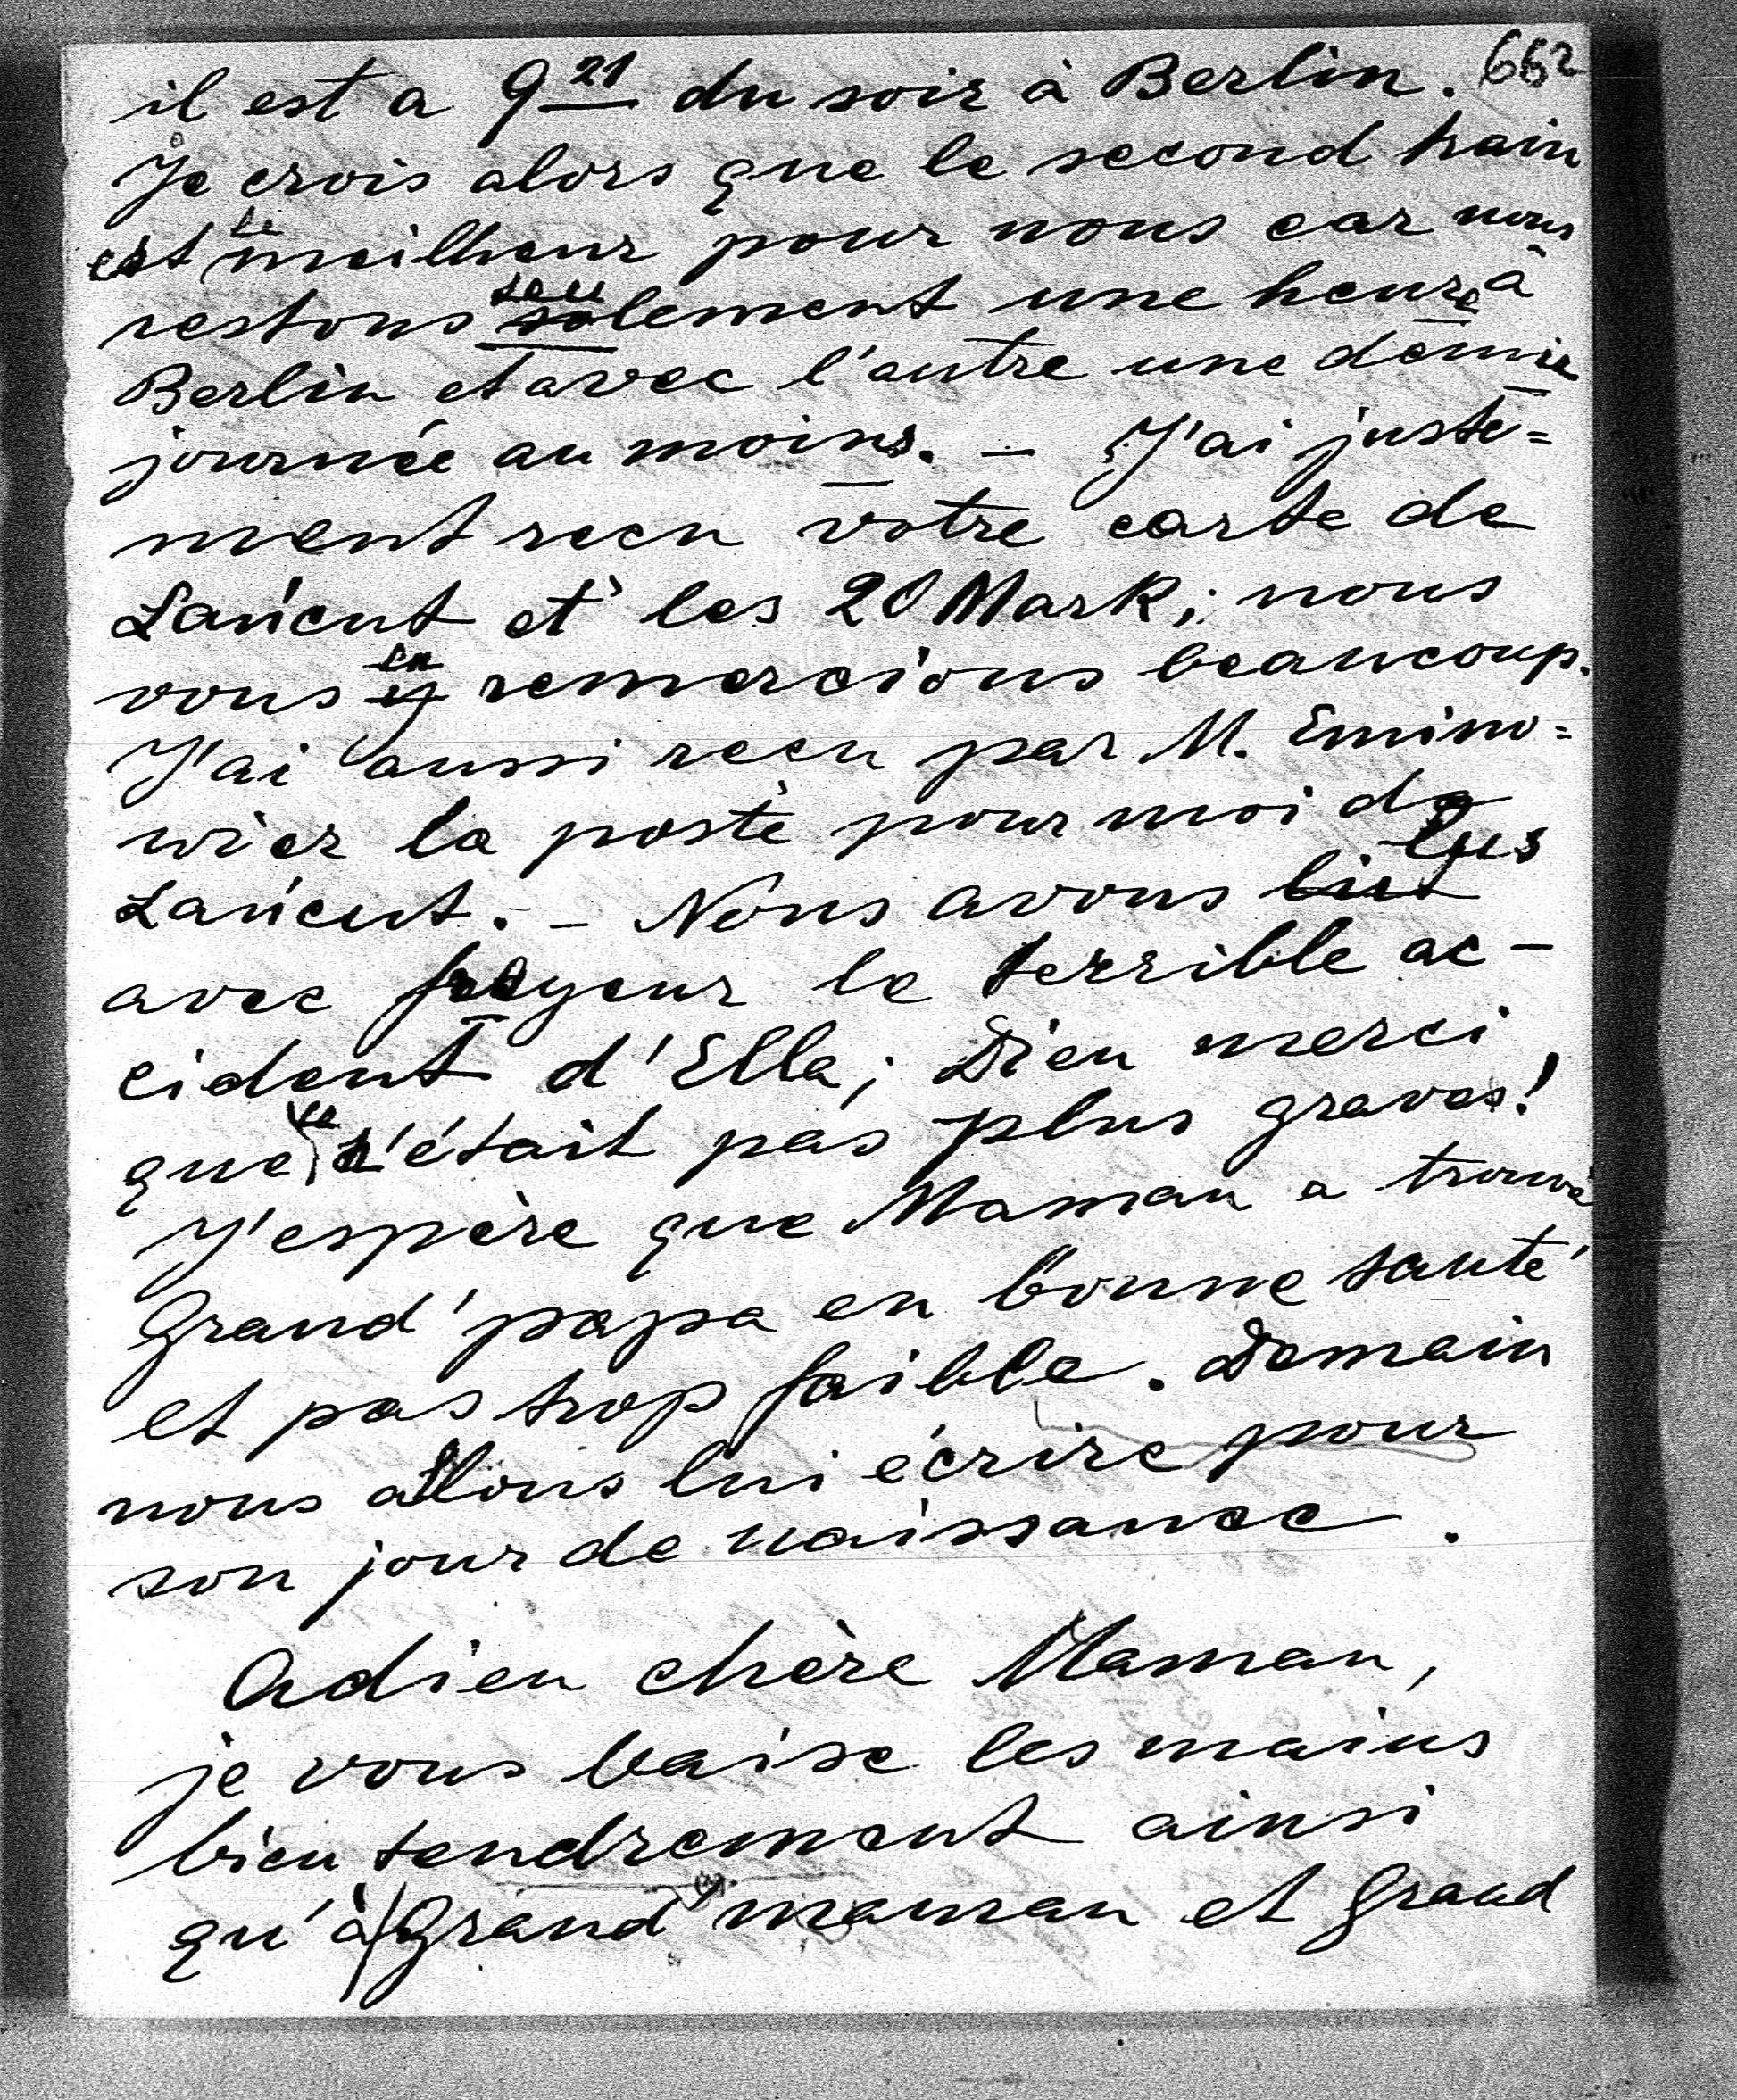 662
il est a 9 21 du soir à Berlin.
Je crois alors que le second train
est le meilheur pour nous car nous
restons seulement une heure à
Berlin et avec l'autre une demie
journée au moins. – J'ai juste=
ment recu votre carte de
Łańcut et les 20 Mark; nous
vous en remercions beaucoup.
J'ai aussi recu par M. Emino=
wicz la poste pour moi de
Łańcut. – Nous avons lus
avec frayeur le terrible ac-
cident d'Ella; Dieu merci
que ce n'était pas plus graves!
J'espère que Maman a trouvé
Grand'papa en bonne santé
et pas trop faible. Demain
nous allons lui écrire pour
son jour de naissance.
Adieu chère Maman,
je vous baise les mains
bien tendrement ainsi
qu'à Grand'maman et Grand